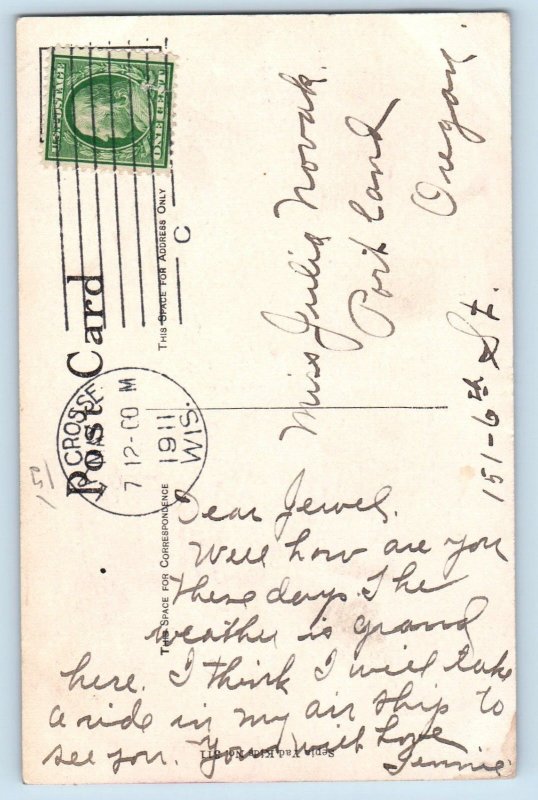 U.S. POSTAGE
ONE CENT
C
Post Card
THIS SPACE FOR ADDRESS ONLY
THIS SPACE FOR CORRESPONDENCE
CROSSE
7 12-60 M
1911
WIS.
151
Miss Julia Novak.
Portland
Oregon
151-6th St.
Dear Jewel.
Well how are you
these days. The
weather is grand
here. I think I will take
a ride in my air ship to
see you. You with love
Jennie
Sepia Fad Kids No. 311